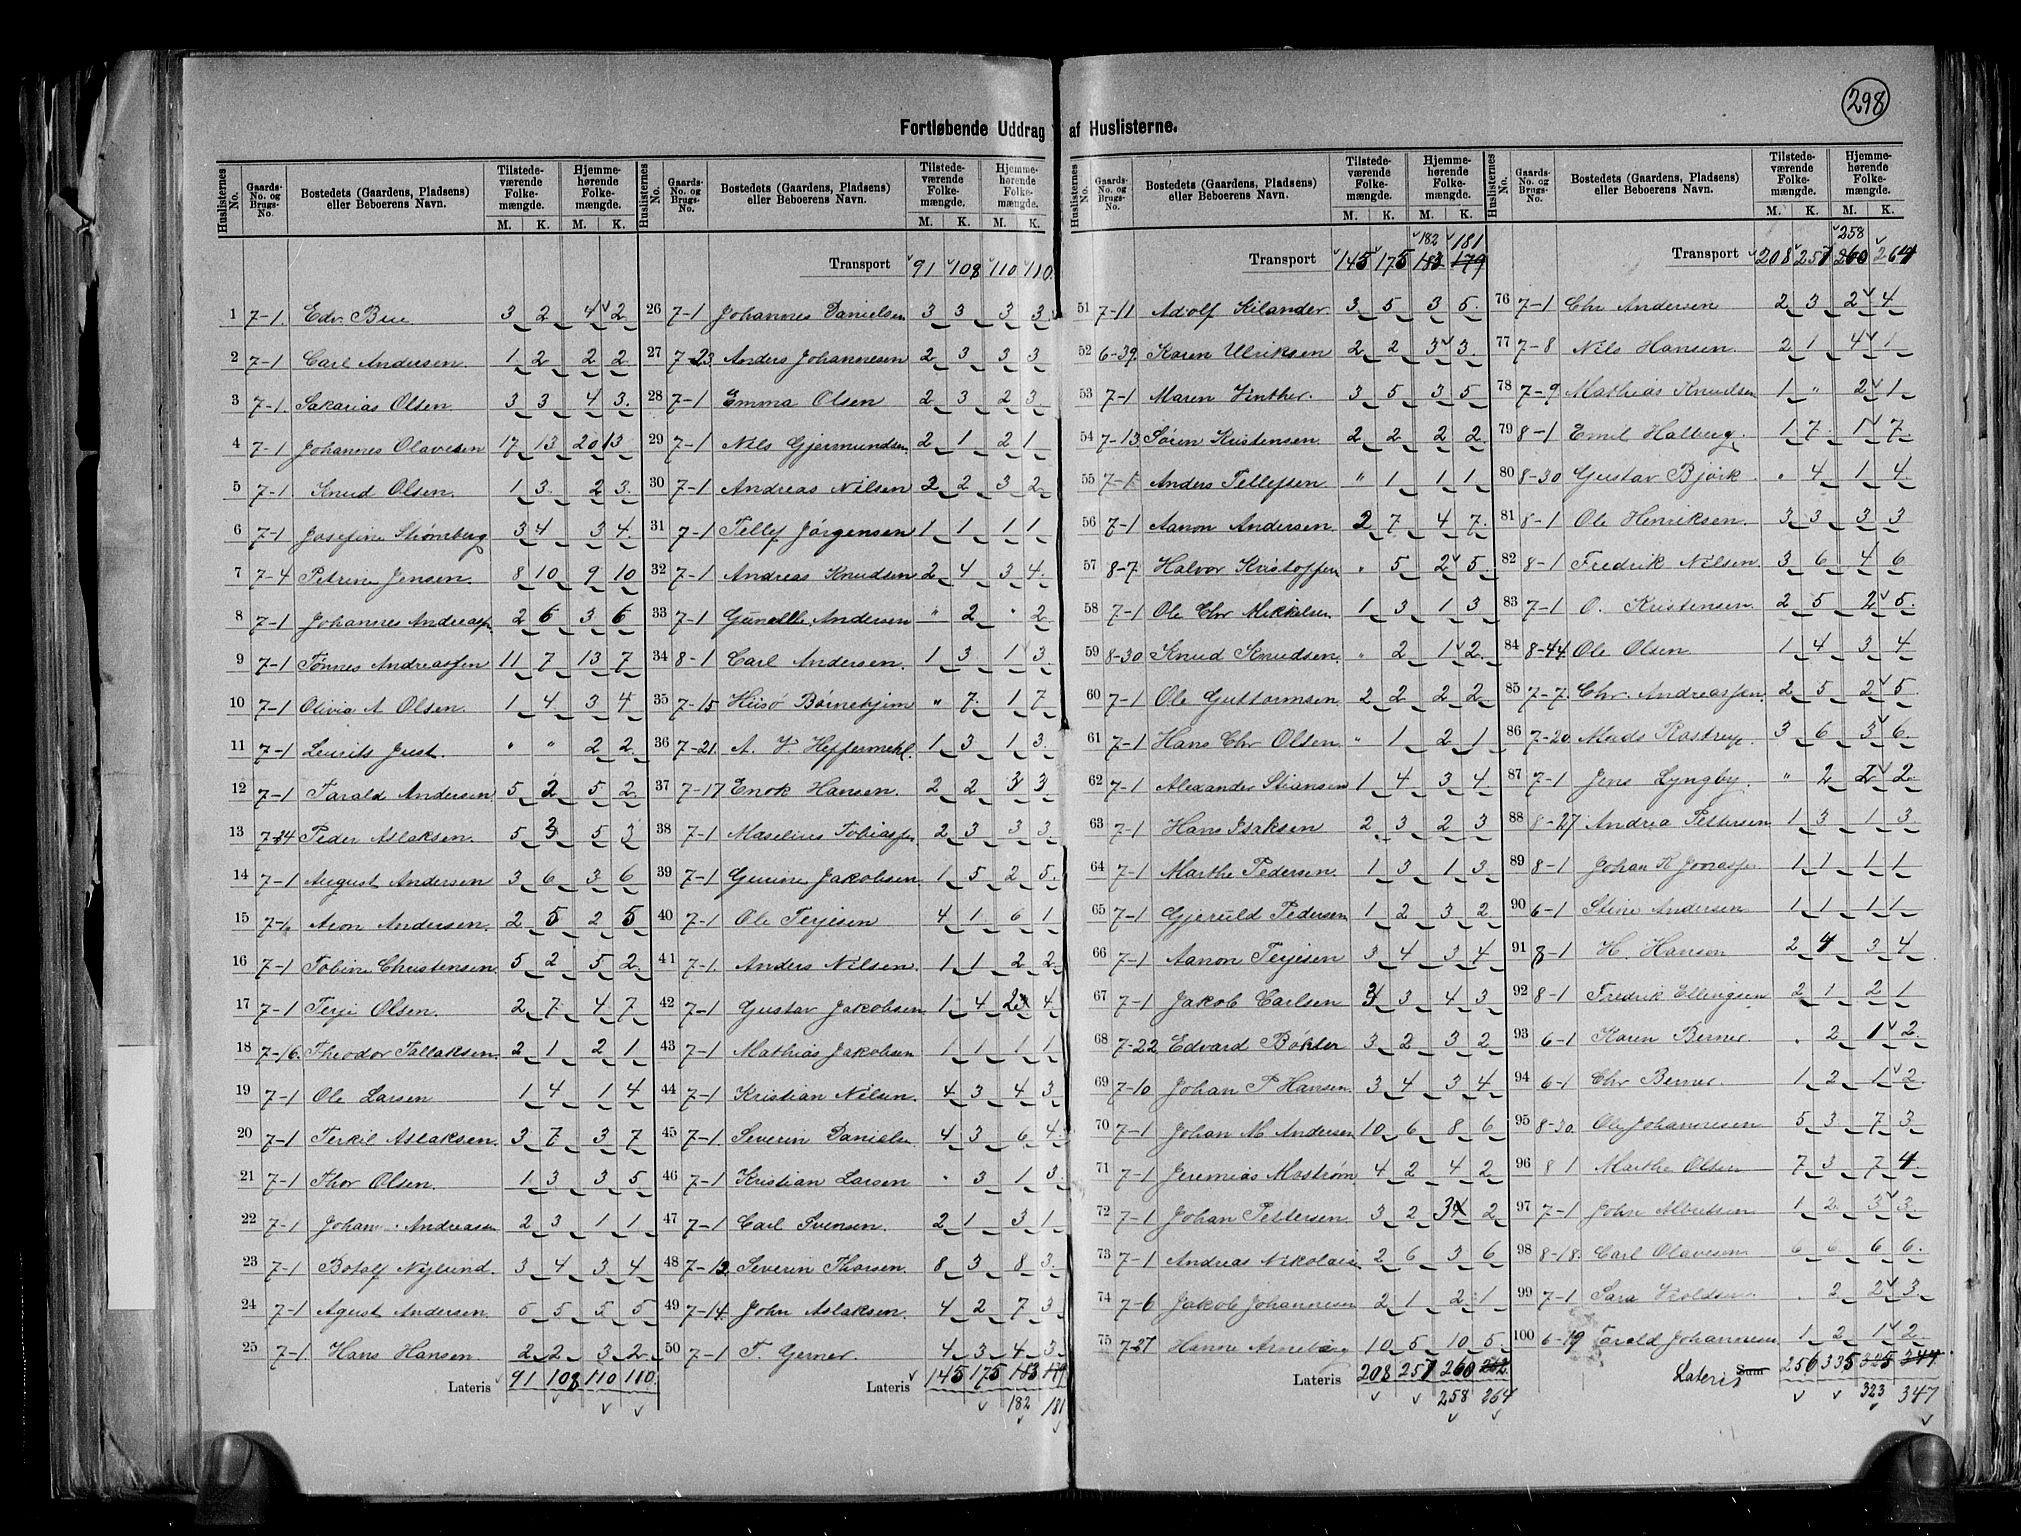 298
Fortløbende Uddrag af Huslisterne.
Huslisternes No. Gaards-No. og Brugs-No. Bostedets (Gaardens, Pladsens) eller Beboerens Navn. Tilstedeværende Folkemængde. M. K. Hjemmehørende Folkemængde. M. K.
1 7-1. Edv. Bue 3 2 4 2
2 7-1 Carl Andersen 1 2 2 2
3 7-1. Sakarias Olsen 3 3 4 3
4 7-1 Johannes Olavesen 17 13 20 13
5 7-1. Knud Olsen. 1 3 2 3
6 7-1 Josefine Strømberg 3 4 3 4
7 7-4 Petrine Jensen 8 10 9 10
8 7-1 Johannes Andreass. 2 6 3 6
9 7-1 Tønnes Andreassen 11 7 13 7
10 7-1 Olivia A Olsen. 1 4 3 4
11 7-1 Lourits Just. " " 2 2
12 7-1 Tarald Andersen 5 2 5 2
13 7-24 Peder Aslaksen. 5 3 5 3
14 7-1 August Andersen 3 6 3 6
15 7-1 Aron Andersen. 2 5 2 5
16 7-1 Tobine Christensen 5 2 5 2
17 7-1 Terje Olsen. 2 7 4 7
18 7-16. Theodor Tallaksen. 2 1 2 1
19 7-1 Ole Larsen 1 4 1 4
20 7-1 Terkil Aslaksen. 3 7 3 7
21 7-1 Thor Olsen. 1 3 3 5
22 7-1 Johan Andreasen 2 3 1 1
23 7-1 Botolf Nylund. 3 4 3 4
24 7-1 Agust Andersen 5 5 5 5
25 7-1. Hans Hansen. 2 2 3 2
Lateris 91 108 110 110.
Transport 91 108 110 110.
26 7-1 Johannes Danielsen 3 3 3 3
27 7-23 Anders Johannesen 2 3 3 3
28 7-1 Emma Olsen 2 3 2 3
29 7-1 Nils Gjermundsen 2 1 2 1
30 7-1 Andreas Nilsen 2 2 3 2
31 7-1 Tellef Jörgensen 1 1 1 1
32 7-1 Andreas Knudsen 2 4 3 4
33 7-1 Gunelle Andersen " 2 " 2
34 8-1 Carl Andersen. 1 3 1 3
35 7-15 Hisö Börnehjem " 7 1 7
36 7-21. A. V. Heffermehl. 1 3 1 3
37 7-17 Enok Hansen. 2 2 3 3
38 7-1 Maselius Tobiassen 2 3 3 3
39 7-1 Gunine Jakobsen. 1 5 2 5
40 7-1 Ole Terjesen 4 1 6 1
41 7-1. Anders Nilsen. 1 1 2 2
42 7-1 Gustav Jakobsen 1 4 2 4
43 7-1 Mathias Jakobsen 1 1 1 1
44 7-1 Kristian Nilsen. 4 3 4 3
45 7-1 Severin Danielsen 4 3 6 4
46 7-1 Kristian Larsen " 3 1 3
47 7-1 Carl Svensen. 2 1 3 1
48 7-12 Severin Thorsen 8 3 8 3
49 7-14. John Aslaksen. 4 2 7 3
50 7-1 T. Gerner. 4 3 4 3
Lateris 145 175 183 179
182 181
182 181
Transport 145 175 183 179
51 7-11 Adolf Kilander. 3 5 3 5
52 6-39. Karen Ulriksen 2 2 3 3
53 7-1 Maren Vinther. 3 5 3 5
54 7-13 Sören Kristensen 2 2 2 2
55 7-1 Anders Tellefsen " 1 1 1
56 7-1 Aanon Andersen. 2 7 4 7
57 8-7 Halvor Kristoffen " 5 2 5
58 7-1 Ole Chr Mikkelsen 1 3 1 3
59 8-30 Knud Knudsen. " 2 1 2
60 7-1 Ole Guttormsen 2 2 2 2
61 7-1 Hans Chr Olsen " 1 2 1
62 7-1 Alexander Stiansen 1 4 3 4
63 7-1 Hans Isaksen 2 3 2 3
64 7-1 Marthe Pedersen. 1 3 1 3
65 7-1 Gjeruld Pedersen 1 2 3 2
66 7-1 Aanon Terjesen 3 4 3 4
67 7-1 Jakob Carlsen 3 3 4 3
68 7-22 Edvard Böhler 3 2 3 2
69 7-10 Johan P Hansen. 3 4 3 4
70 7-1 Johan M Andersen 10 6 8 6
71 7-1 Jeremias Moström 4 2 4 2
72 7-1 Johan Pettersen. 3 2 3 2
73 7-1 Andreas Nikolais 2 6 3 6
74 7-6 Jakob Johannesen 2 1 2 1
75 7-27 Hanne Arneberg 10 5 10 5
Lateris 208 257 260 262
258 264
258
Transport 208 257 260 264
76 7-1 Chr Andersen 2 3 2 4
77 7-8 Nils Hansen. 2 1 4 1
78 7-9 Mathias Knudsen 1 " 2 1
79 8-1 Emil Halberg. 1 7 1 7
80 8-30 Gustav Björk " 4 1 4
81 8-1 Ole Henriksen. 3 3 3 3
82 8-1 Fredrik Nilsen. 3 6 4 6
83 7-1 O. Kristensen 2 5 2 5
84 8-44 Ole Olsen 1 4 3 4
85 7-7. Chr. Andreassen. 2 5 2 5
86 7-20 Mads Rostrup. 3 6 3 6
87 7-1 Jens Lyngby. " 2 2 2
88 8-27 Andrea Pettersen 1 3 1 3
89 8-1 Johan K Jonassen 1 1 1 1
90 6-1 Stine Andersen 1 1 1 1
91 8-1 H. Hansen 2 4 3 4
92 8-1 Fredrik Ellingsen 2 1 2 1
93 6-1 Karen Berner " 2 1 2
94 6-1 Chr Berner 1 2 1 2
95 8-30. Ole Johannesen 5 3 7 3
96 8 1 Marthe Olsen 7 3 7 4
97 7-1 John Albretsen 1 2 3 3
98 8-18. Carl Olavesen 6 6 6 6
99 7-1 Sara " 2 2 3
100 6-19 Tarald Johannesen 1 2 1 2
Lateris Sum 256 335 325 344
323 347